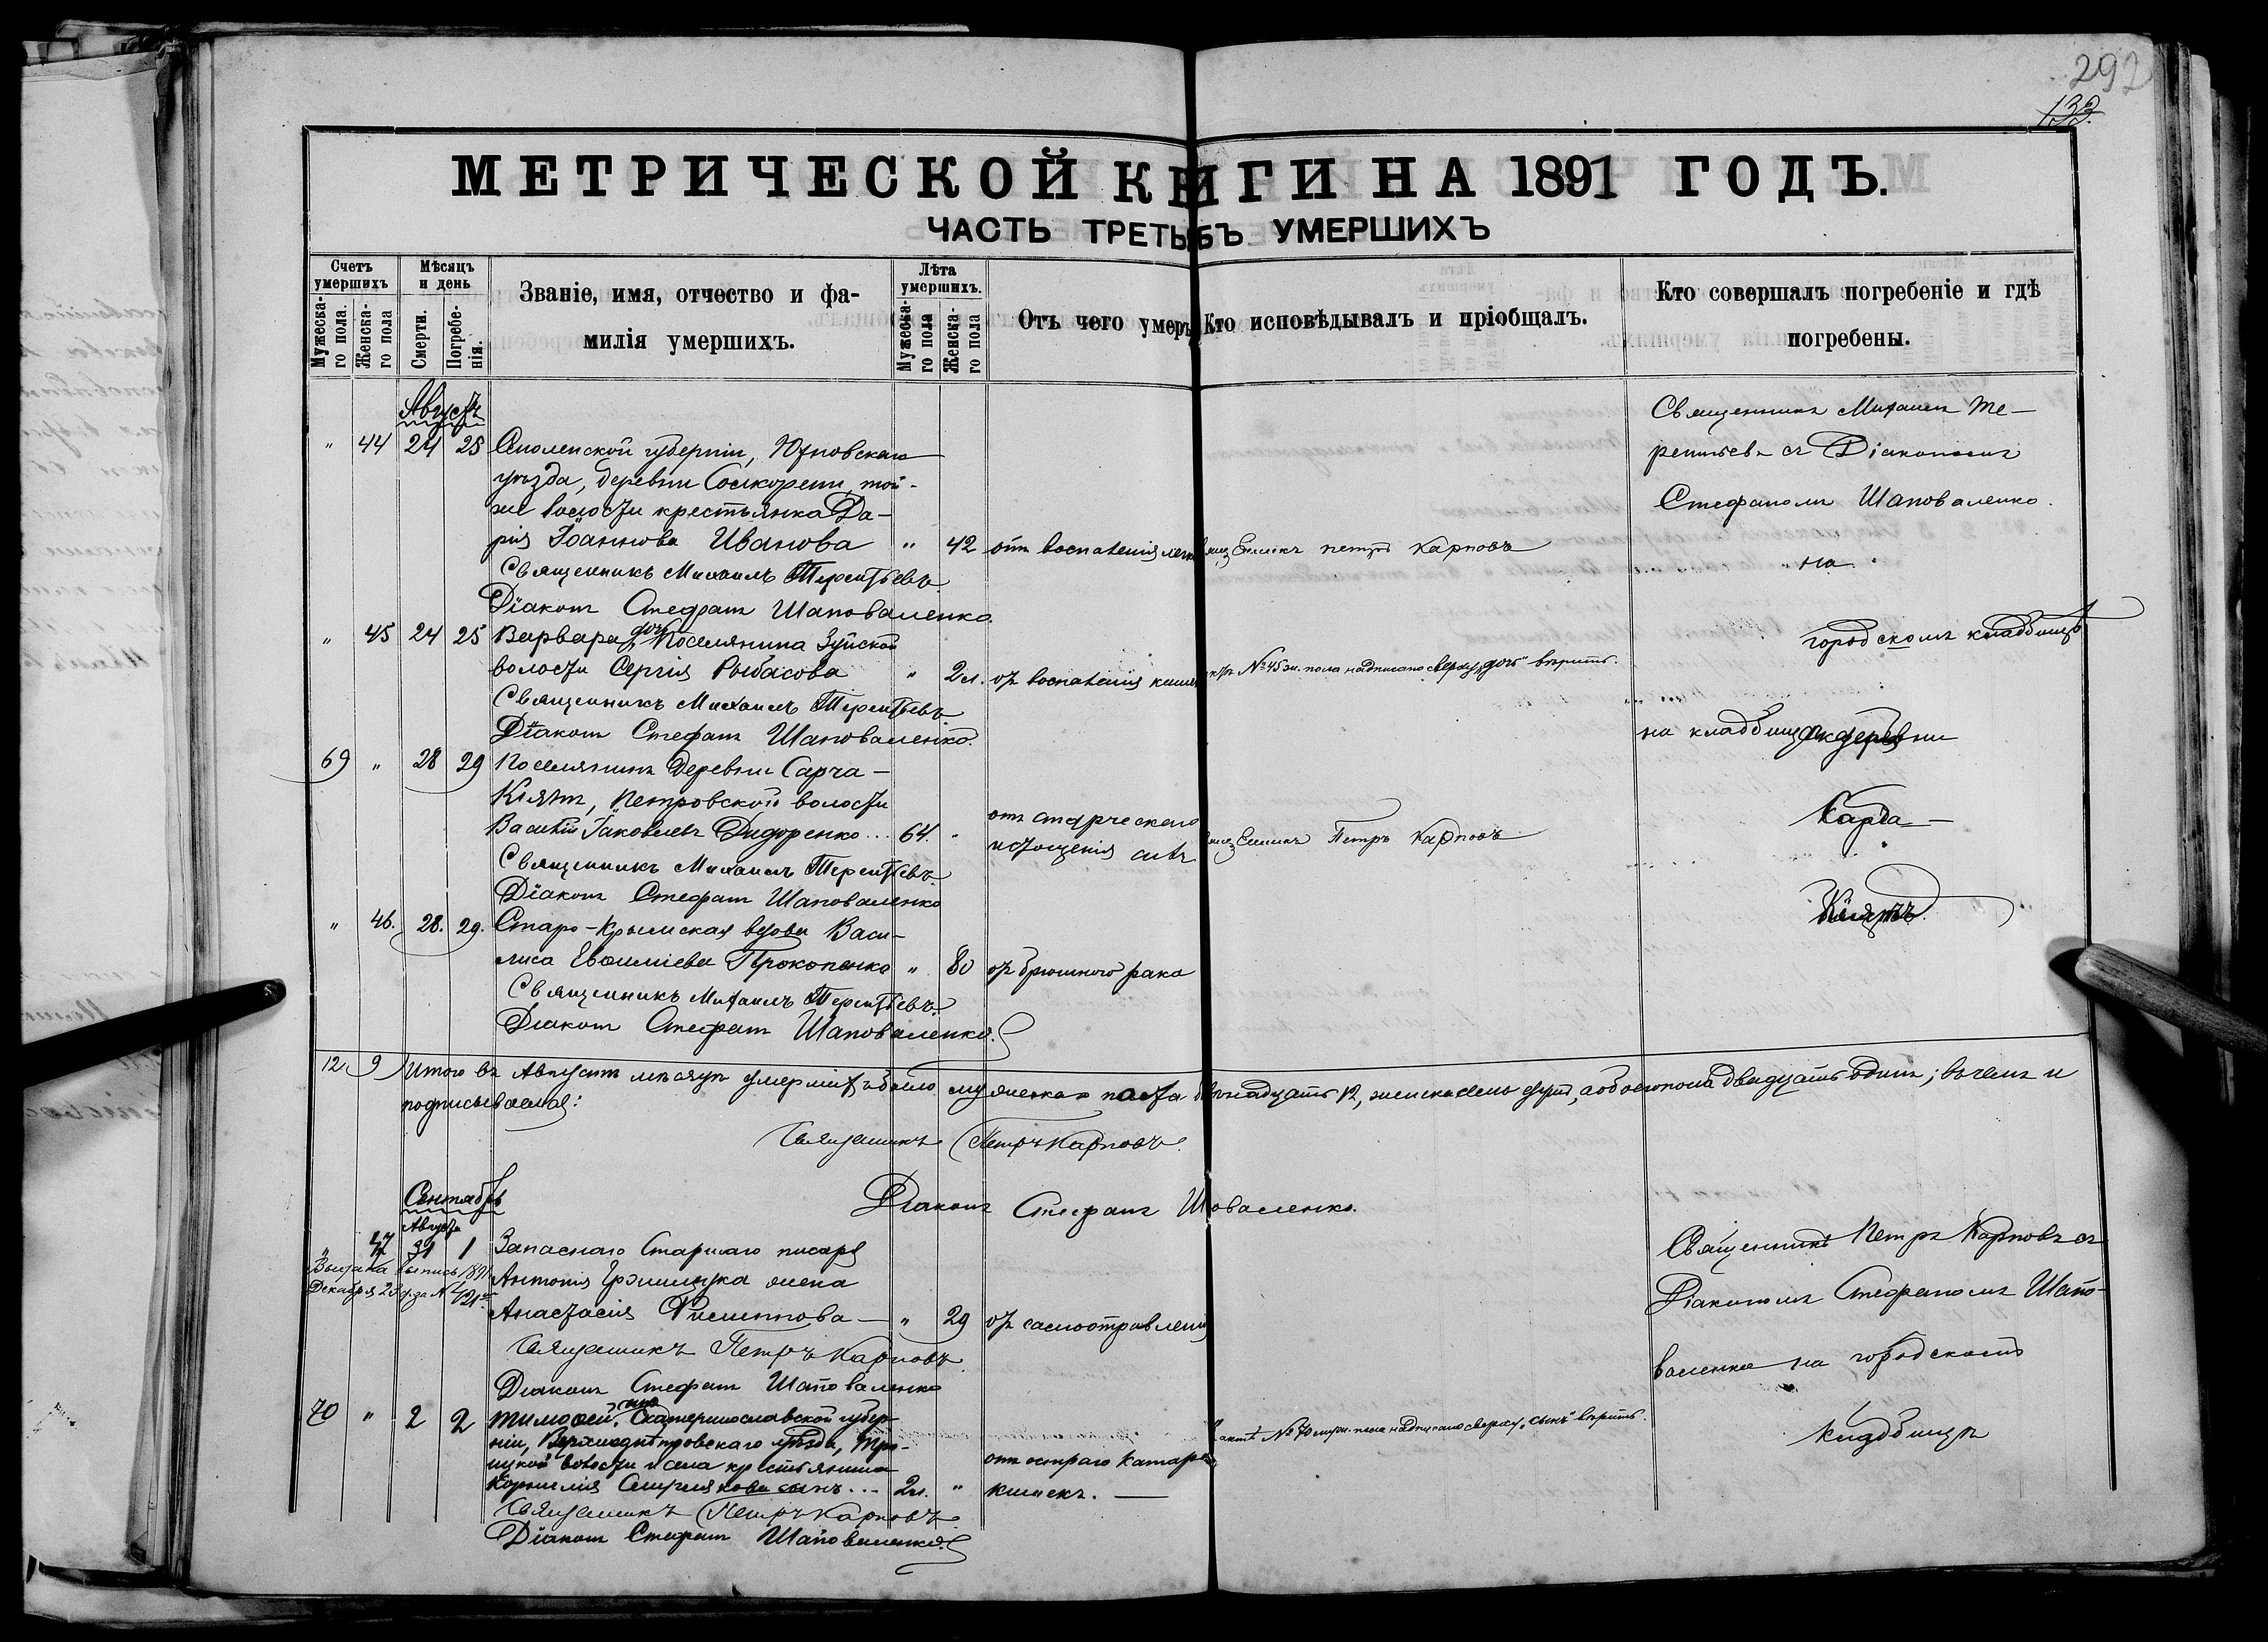 292
133.
МЕТРИЧЕСКОЙ КНИГИ НА 1891 ГОДЪ.
ЧАСТЬ ТРЕТЬЯ УМЕРШИХЪ
Счетъ умершихъ
Мѣсяцъ и день
Званіе, имя, отчество и фа-
милія умершихъ.
Лѣта умершихъ.
Отъ чего умеръ
Кто исповѣдывалъ и пріобщалъ.
Кто совершалъ погребеніе и гдѣ
погребены.
Мужеска-го пола.
Женска-го пола
Смерти.
Погребе-нія.
Мужеска-го пола
Женска-го пола
Августъ
" 44 24 25 Смоленской губерніи, Юхновскаго
уѣзда, деревни той-
же волости крестьянка Да-
рія Іоаннова Иванова " 42 отъ воспаленія легк священникъ Петръ Карповъ
Священникъ Михаилъ Терентьевъ
Діаконъ Стефанъ Шаповаленко.
Священникъ Михаилъ Те-
рентьевъ съ Діакономъ
Стефаномъ Шаповаленко.
на
городскомъ кладбищѣ
" 45 24 25 Варвара дочь Поселянина Зуйской
волости Сергія Рыбасова " 2 м. отъ воспаленія кишекъ № 45 ж. пола надписано сверху „дочь" вѣрить.
Священникъ Михаилъ Терентьевъ
Діаконъ Стефанъ Шаповаленко.
на кладбищѣ деревни
Карга
Кіятъ.
69 " 28 29 Поселянинъ деревни Сарча-
Кіятъ, Петровской волости
Василій Іаковлевъ Дидоренко... 64. " отъ старческаго
истощенія силъ священникъ Петръ Карповъ
Священникъ Михаилъ Терентьевъ.
Діаконъ Стефанъ Шаповаленко
" 46. 28. 29. Старо-Крымская вдова Васи-
лиса Евѳиміева Прокопенко " 80 отъ брюшного рака
Священникъ Михаилъ Терентьевъ.
Діаконъ Стефанъ Шаповаленко.
12 9 Итого въ Августѣ мѣсяцѣ умершихъ было мужеска пола двѣнадцать 12, женска девять, а обоего пола двадцать одинъ; въ чемъ и
подписываемся:
Священникъ Петръ Карповъ.
Діаконъ Стефанъ Шаповаленко.
Сентябрь
Августа
" 47 31 1 Запаснаго Старшаго писаря
Выдана выпись 1891
Декабря 23 д. за № 421
Антонія жена
Анастасія Филиппова " 29 отъ самоотравленія
Священникъ Петръ Карповъ.
Діаконъ Стефанъ Шаповаленко
Священникъ Петръ Карповъ съ
Діакономъ Стефаномъ Шапо-
валенко на городскомъ
кладбищѣ
70 " 2 2 Тимоѳей, Екатеринославской губер-
ніи, Верхнеднѣпровскаго уѣзда, Тро-
ицкой волости и села крестьянина
Корнилія сынъ... 2 м. "
отъ остраго катарра
кишекъ.
актѣ № 70 муж. пола надписано сверху „сынъ" вѣрить.
Священникъ Петръ Карповъ.
Діаконъ Стефанъ Шаповаленко.